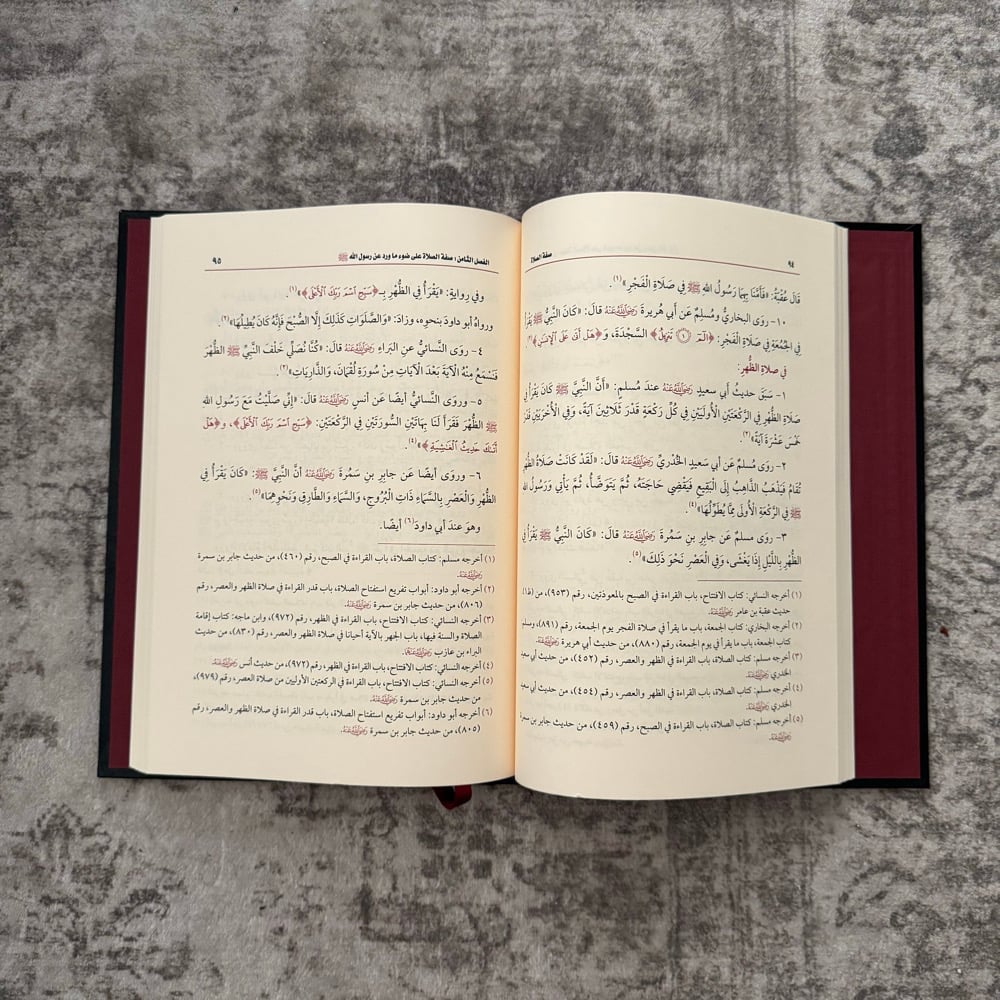 ٩٤
صفة الصلاة
قَالَ عُقْبَةُ: «فَأَمَّنَا بِهِمَا رَسُولُ اللهِ ﷺ فِي صَلَاةِ الْفَجْرِ»(١).
١٠- روَى البخاريُّ ومُسلِمٌ عَن أَبي هُريرةَ رَضِيَ اللَّهُ عَنْهُ قَالَ: «كَانَ النَّبِيُّ ﷺ يَقْرَأُ
فِي الْجُمُعَةِ فِي صَلَاةِ الْفَجْرِ: ﴿الٓمٓ ١ تَنزِيلُ﴾ السَّجْدَةَ، وَ﴿هَلْ أَتَىٰ عَلَى ٱلْإِنسَٰنِ﴾»(٢).
في صلاةِ الظُّهرِ:
١- سَبَقَ حديثُ أَبي سعيدٍ رَضِيَ اللَّهُ عَنْهُ عندَ مُسلمٍ: «أَنَّ النَّبِيَّ ﷺ كَانَ يَقْرَأُ فِي
صَلَاةِ الظُّهْرِ فِي الرَّكْعَتَيْنِ الْأُولَيَيْنِ فِي كُلِّ رَكْعَةٍ قَدْرَ ثَلَاثِينَ آيَةً، وَفِي الْأُخْرَيَيْنِ قَدْرَ
خَمْسَ عَشْرَةَ آيَةً»(٣).
٢- روَى مُسلمٌ عَن أَبي سعيدٍ الخُدْريِّ رَضِيَ اللَّهُ عَنْهُ قَالَ: «لَقَدْ كَانَتْ صَلَاةُ الظُّهْرِ
تُقَامُ فَيَذْهَبُ الذَّاهِبُ إِلَى الْبَقِيعِ فَيَقْضِي حَاجَتَهُ، ثُمَّ يَتَوَضَّأُ، ثُمَّ يَأْتِي وَرَسُولُ اللهِ
ﷺ فِي الرَّكْعَةِ الْأُولَى مِمَّا يُطَوِّلُهَا»(٤).
٣- روَى مسلمٌ عَن جابرِ بنِ سَمُرةَ رَضِيَ اللَّهُ عَنْهُ قَالَ: «كَانَ النَّبِيُّ ﷺ يَقْرَأُ فِي
الظُّهْرِ بِاللَّيْلِ إِذَا يَغْشَى، وَفِي الْعَصْرِ نَحْوَ ذَلِكَ»(٥).
(١) أخرجه النسائي: كتاب الافتتاح، باب القراءة في الصبح بالمعوذتين، رقم (٩٥٣)، من
حديث عقبة بن عامر رَضِيَ اللَّهُ عَنْهُ.
(٢) أخرجه البخاري: كتاب الجمعة، باب ما يقرأ في صلاة الفجر يوم الجمعة، رقم (٨٩١)، ومسلم:
كتاب الجمعة، باب ما يقرأ في يوم الجمعة، رقم (٨٨٠)، من حديث أبي هريرة رَضِيَ اللَّهُ عَنْهُ.
(٣) أخرجه مسلم: كتاب الصلاة، باب القراءة في الظهر والعصر، رقم (٤٥٢)، من حديث أبي سعيد
الخدري رَضِيَ اللَّهُ عَنْهُ.
(٤) أخرجه مسلم: كتاب الصلاة، باب القراءة في الظهر والعصر، رقم (٤٥٤)، من حديث أبي سعيد
الخدري رَضِيَ اللَّهُ عَنْهُ.
(٥) أخرجه مسلم: كتاب الصلاة، باب القراءة في الصبح، رقم (٤٥٩)، من حديث جابر بن سمرة
رَضِيَ اللَّهُ عَنْهُ.
الفصل الثامن: صفة الصلاة على ضوء ما ورد عن رسول الله ﷺ
٩٥
وفي روايةٍ: «يَقْرَأُ فِي الظُّهْرِ بِـ﴿سَبِّحِ ٱسْمَ رَبِّكَ ٱلْأَعْلَى﴾»(١).
ورواهُ أَبو داودَ بنحوِه، وزادَ: «وَالصَّلَوَاتِ كَذَلِكَ إِلَّا الصُّبْحَ فَإِنَّهُ كَانَ يُطِيلُهَا»(٢).
٤- روَى النَّسائيُّ عنِ البَراءِ رَضِيَ اللَّهُ عَنْهُ قَالَ: «كُنَّا نُصَلِّي خَلْفَ النَّبِيِّ ﷺ الظُّهْرَ
فَنَسْمَعُ مِنْهُ الْآيَةَ بَعْدَ الْآيَاتِ مِنْ سُورَةِ لُقْمَانَ، وَالذَّارِيَاتِ»(٣).
٥- وروَى النَّسائيُّ أيضًا عَن أنسٍ رَضِيَ اللَّهُ عَنْهُ قَالَ: «إِنِّي صَلَّيْتُ مَعَ رَسُولِ اللهِ
ﷺ الظُّهْرَ فَقَرَأَ لَنَا بِهَاتَيْنِ السُّورَتَيْنِ فِي الرَّكْعَتَيْنِ: ﴿سَبِّحِ ٱسْمَ رَبِّكَ ٱلْأَعْلَى﴾، وَ﴿هَلْ
أَتَىٰكَ حَدِيثُ ٱلْغَٰشِيَةِ﴾»(٤).
٦- وروَى أيضًا عَن جابرِ بنِ سَمُرةَ رَضِيَ اللَّهُ عَنْهُ أنَّ النَّبيَّ ﷺ: «كَانَ يَقْرَأُ فِي
الظُّهْرِ وَالْعَصْرِ بِالسَّمَاءِ ذَاتِ الْبُرُوجِ، وَالسَّمَاءِ وَالطَّارِقِ وَنَحْوِهِمَا»(٥).
وهوَ عندَ أَبي داودَ(٦) أيضًا.
(١) أخرجه مسلم: كتاب الصلاة، باب القراءة في الصبح، رقم (٤٦٠)، من حديث جابر بن سمرة
رَضِيَ اللَّهُ عَنْهُ.
(٢) أخرجه أبو داود: أبواب تفريع استفتاح الصلاة، باب قدر القراءة في صلاة الظهر والعصر، رقم
(٨٠٦)، من حديث جابر بن سمرة رَضِيَ اللَّهُ عَنْهُ.
(٣) أخرجه النسائي: كتاب الافتتاح، باب القراءة في الظهر، رقم (٩٧٢)، وابن ماجه: كتاب إقامة
الصلاة والسنة فيها، باب الجهر بالآية أحيانا في صلاة الظهر والعصر، رقم (٨٣٠)، من حديث
البراء بن عازب رَضِيَ اللَّهُ عَنْهُ.
(٤) أخرجه النسائي: كتاب الافتتاح، باب القراءة في الظهر، رقم (٩٧٢)، من حديث أنس رَضِيَ اللَّهُ عَنْهُ.
(٥) أخرجه النسائي: كتاب الافتتاح، باب القراءة في الركعتين الأوليين من صلاة العصر، رقم (٩٧٩)،
من حديث جابر بن سمرة رَضِيَ اللَّهُ عَنْهُ.
(٦) أخرجه أبو داود: أبواب تفريع استفتاح الصلاة، باب قدر القراءة في صلاة الظهر والعصر، رقم
(٨٠٥)، من حديث جابر بن سمرة رَضِيَ اللَّهُ عَنْهُ.